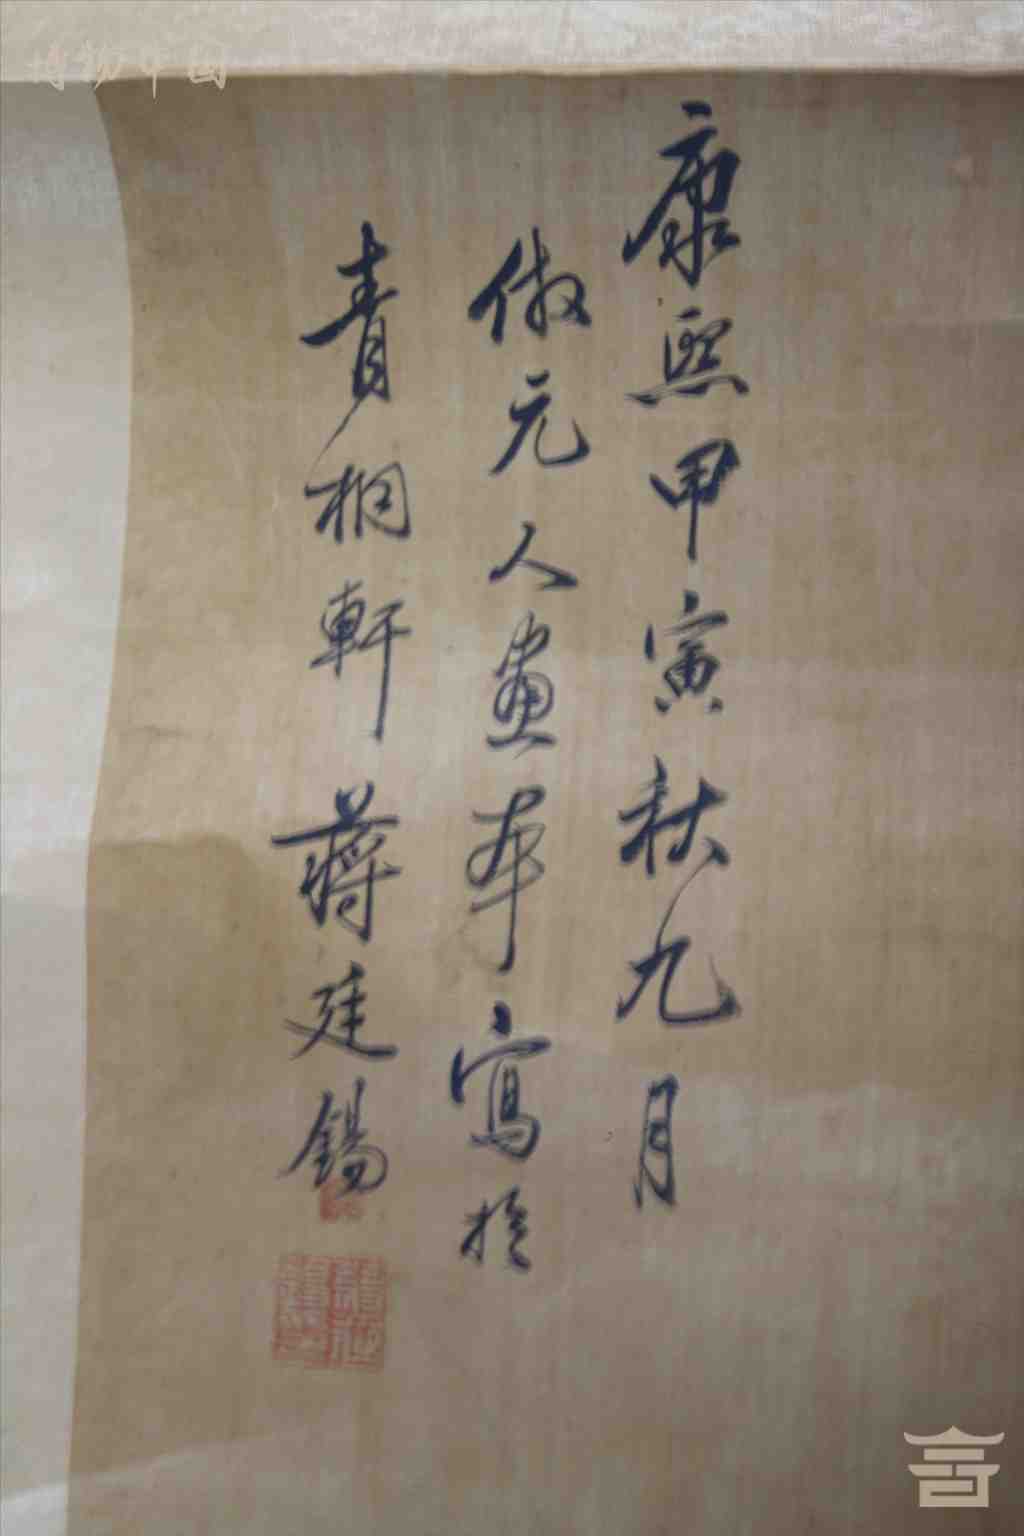 康熙甲寅秋九月
倣元人畫本寫於
青桐軒蔣廷錫
博物中国